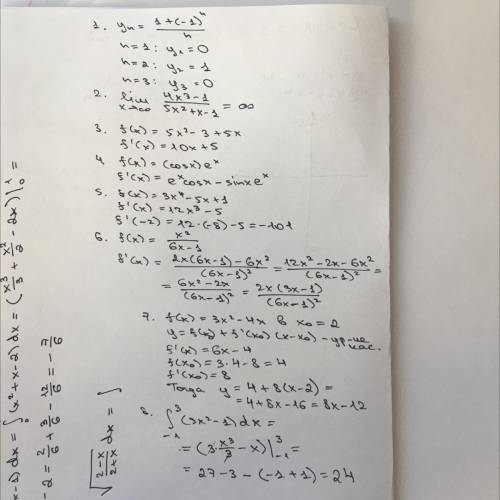 1. yₙ = (1+(-1)ⁿ)/n
n=1: y₁=0
n=2: y₂ = 1
n=3: y₃ = 0
2. lim x→∞ (4x³-1)/(5x²+x-1) = ∞
3. f(x) = 5x²-3+5x
f'(x) = 10x+5
4. f(x) = (cosx)eˣ
f'(x) = eˣcosx - sinxeˣ
5. f(x) = 3x⁴-5x+1
f'(x) = 12x³-5
f'(-2) = 12·(-8)-5 = -101
6. f(x) = x²/(6x-1)
f'(x) = (2x(6x-1)-6x²)/(6x-1)² = (12x²-2x-6x²)/(6x-1)² =
= (6x²-2x)/(6x-1)² = 2x(3x-1)/(6x-1)²
7. f(x) = 3x²-4x в x₀ = 2
y = f(x₀) + f'(x₀)(x-x₀) - ур-ие кас.
f'(x) = 6x-4
f(x₀) = 3·4-8 = 4
f'(x₀) = 8
Тогда y = 4+8(x-2) =
= 4+8x-16 = 8x-12
8. ∫₋₁³ (9x²-1)dx =
= (3·x³/3 - x)|₋₁³ =
= 27-3-(-1+1) = 24
x-2)dx = ∫₀¹ (x²+x-2)dx = (x³/3 + x²/2 - 2x)|₀¹ =
-2 = 2/6 + 3/6 - 12/6 = -7/6
√((2-x)/(2+x)) dx = ∫